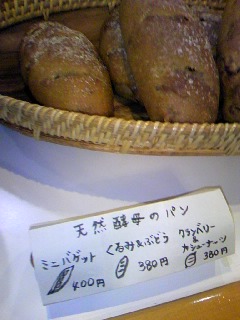 天然酵母のパン
ミニバゲット
400円
くるみ&ぶどう
380円
クランベリー
&
カシューナッツ
380円